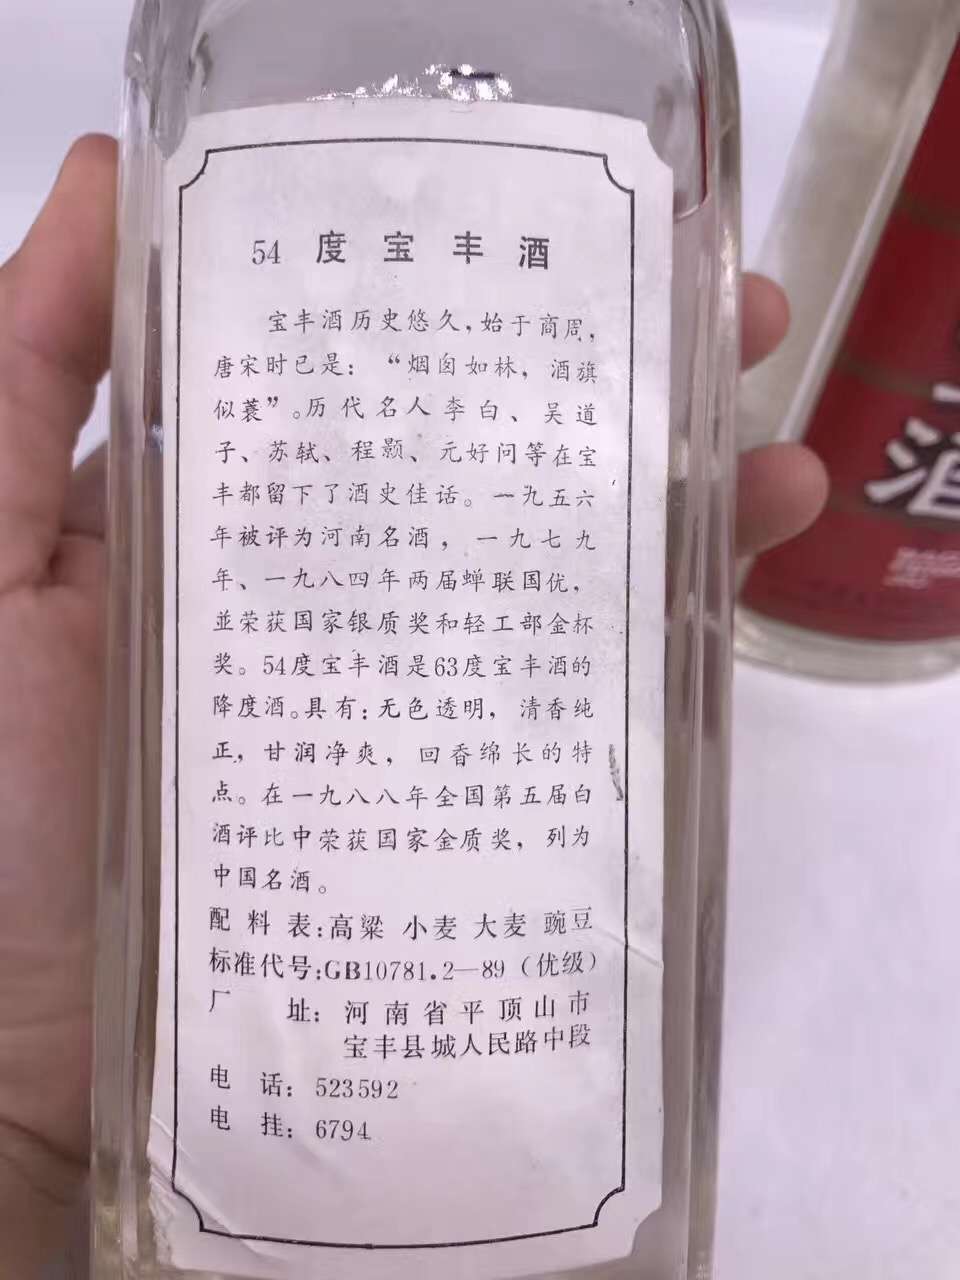 54 度 宝 丰 酒
宝丰酒历史悠久，始于商周，
唐宋时已是：“烟囱如林，酒旗
似蓑”。历代名人李白、吴道
子、苏轼、程颢、元好问等在宝
丰都留下了酒史佳话。一九五六
年被评为河南名酒，一九七九
年、一九八四年两届蝉联国优，
並荣获国家银质奖和轻工部金杯
奖。54度宝丰酒是63度宝丰酒的
降度酒。具有：无色透明，清香纯
正，甘润净爽，回香绵长的特
点。在一九八八年全国第五届白
酒评比中荣获国家金质奖，列为
中国名酒。
配料表：高粱 小麦 大麦 豌豆
标准代号：GB10781.2—89（优级）
厂 址：河南省平顶山市
宝丰县城人民路中段
电 话：523592
电 挂：6794
酒